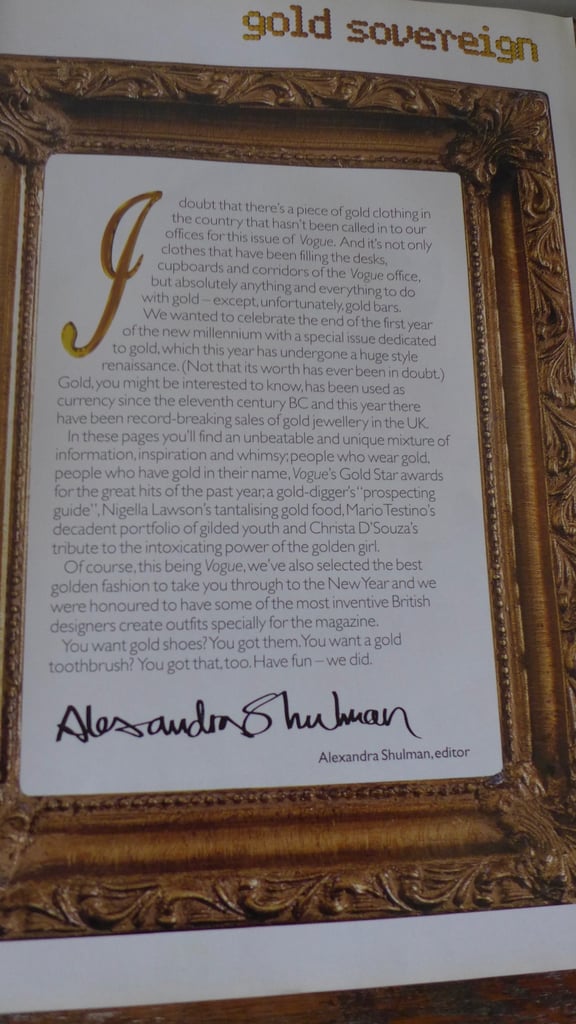 gold sovereign
I doubt that there's a piece of gold clothing in
the country that hasn't been called in to our
offices for this issue of Vogue. And it's not only
clothes that have been filling the desks,
cupboards and corridors of the Vogue office,
but absolutely anything and everything to do
with gold – except, unfortunately, gold bars.
We wanted to celebrate the end of the first year
of the new millennium with a special issue dedicated
to gold, which this year has undergone a huge style
renaissance. (Not that its worth has ever been in doubt.)
Gold, you might be interested to know, has been used as
currency since the eleventh century BC and this year there
have been record-breaking sales of gold jewellery in the UK.
In these pages you'll find an unbeatable and unique mixture of
information, inspiration and whimsy; people who wear gold,
people who have gold in their name, Vogue's Gold Star awards
for the great hits of the past year, a gold-digger's "prospecting
guide", Nigella Lawson's tantalising gold food, Mario Testino's
decadent portfolio of gilded youth and Christa D'Souza's
tribute to the intoxicating power of the golden girl.
Of course, this being Vogue, we've also selected the best
golden fashion to take you through to the New Year and we
were honoured to have some of the most inventive British
designers create outfits specially for the magazine.
You want gold shoes? You got them. You want a gold
toothbrush? You got that, too. Have fun – we did.
Alexandra Shulman
Alexandra Shulman, editor